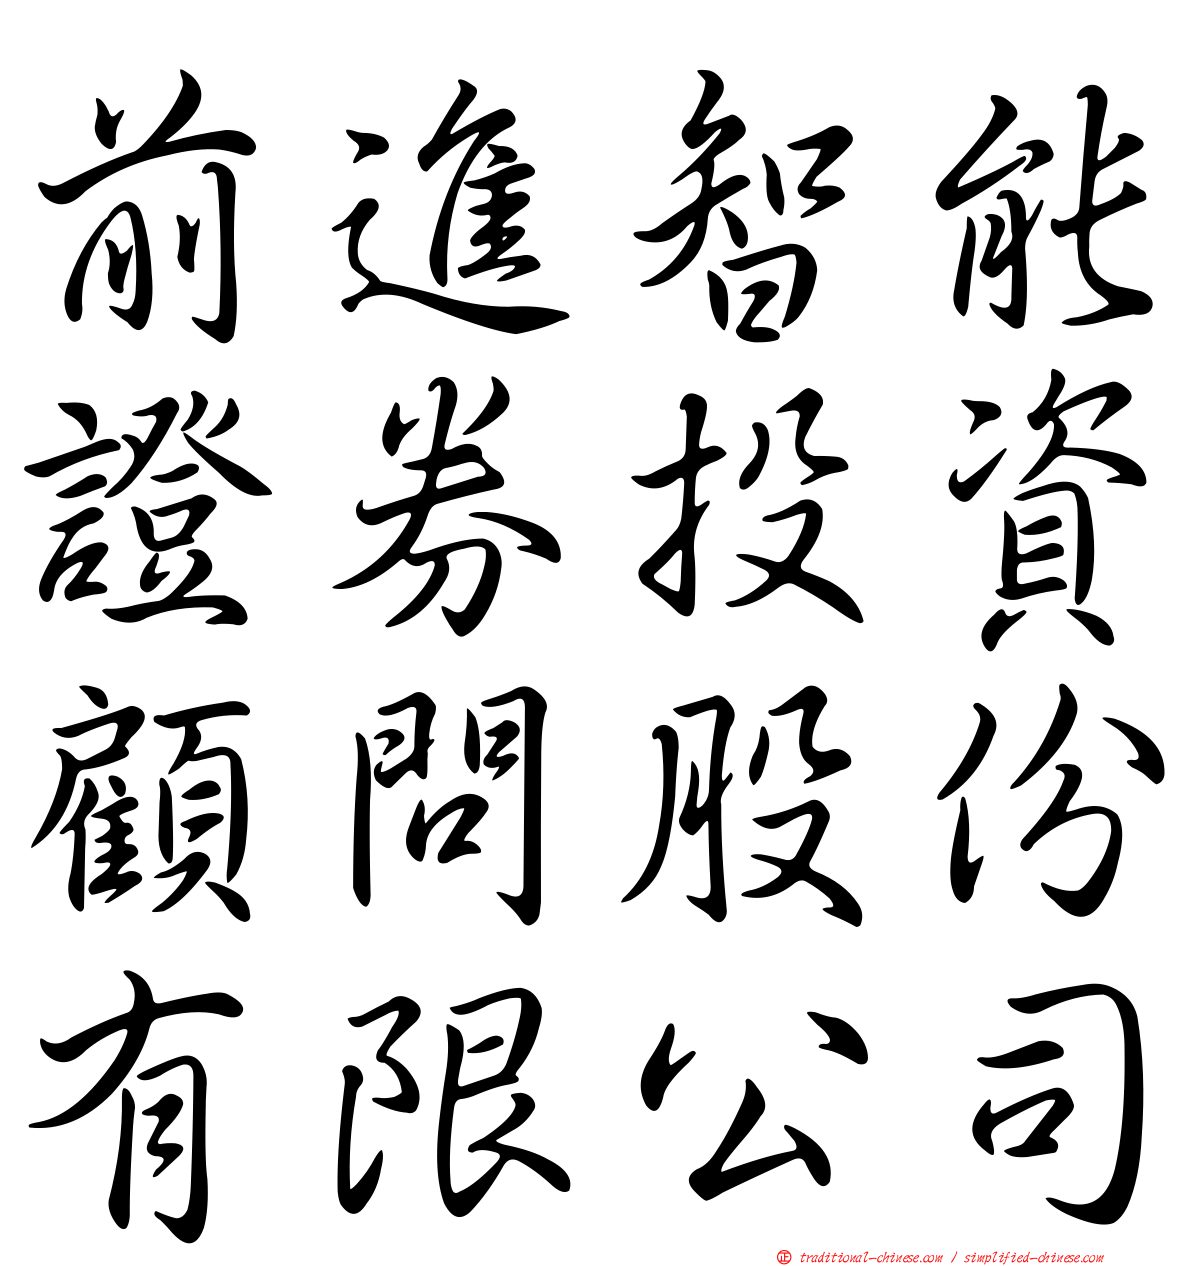 前進智能
證券投資
顧問股份
有限公司
㊣ traditional-chinese.com / simplified-chinese.com